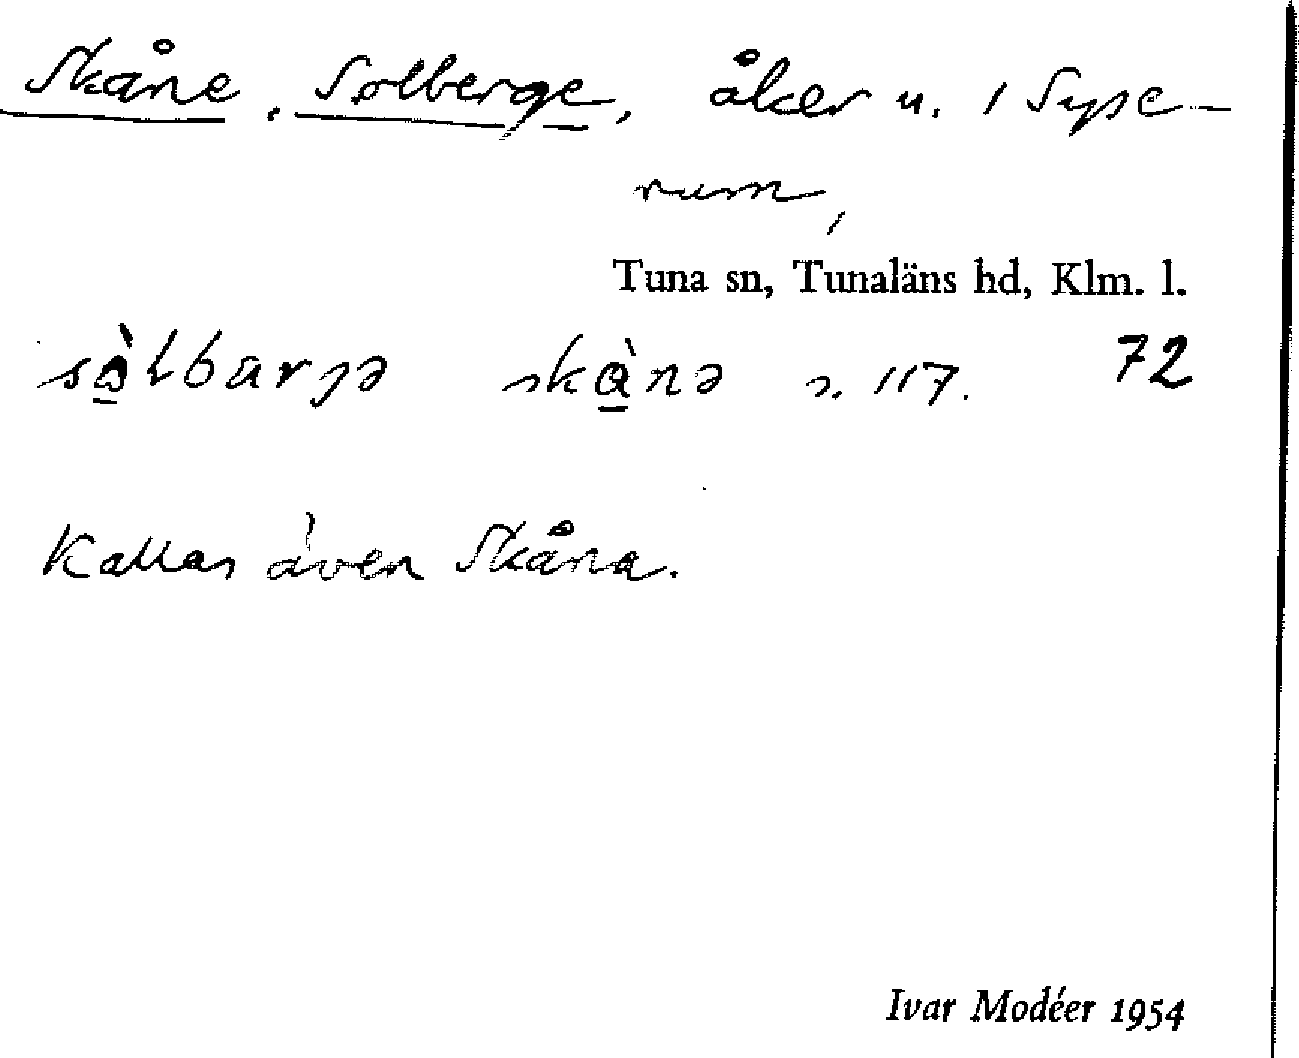 Skåne, Solberge, åker u. 1 Sype-
rum,
Tuna sn, Tunaläns hd, Klm. l.
sò̲lbarjə skà̲nə s. 117. 72
Kallas även Skåna.
Ivar Modéer 1954